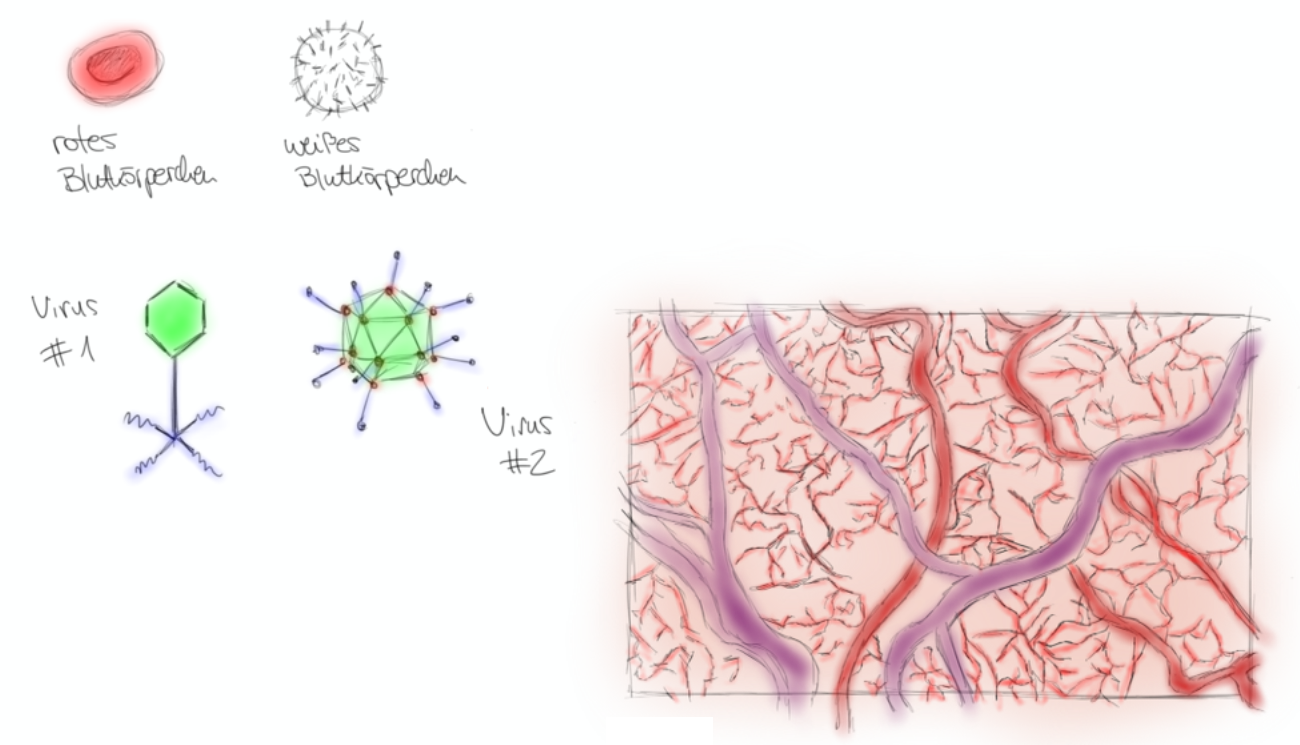 rotes
Blutkörperchen
weißes
Blutkörperchen
Virus
#1
Virus
#2